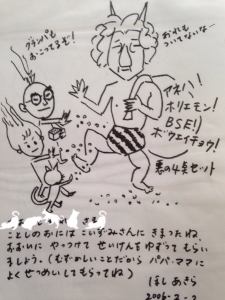 グランパも
おこってるぞ!
おれも
ついてないな〜
アネハ!
ホリエモン!
BSE!!
ボウエイチョウ!
悪の4点セット
さも
ことしのおにはこいずみさんにきまったね。
おもいに やっつけて せいけんをゆずって もらい
ましよう。(むずかしいことだから パパ・ママに
よくせつめいしてもらってね)
ほし あきら
2006-2-2